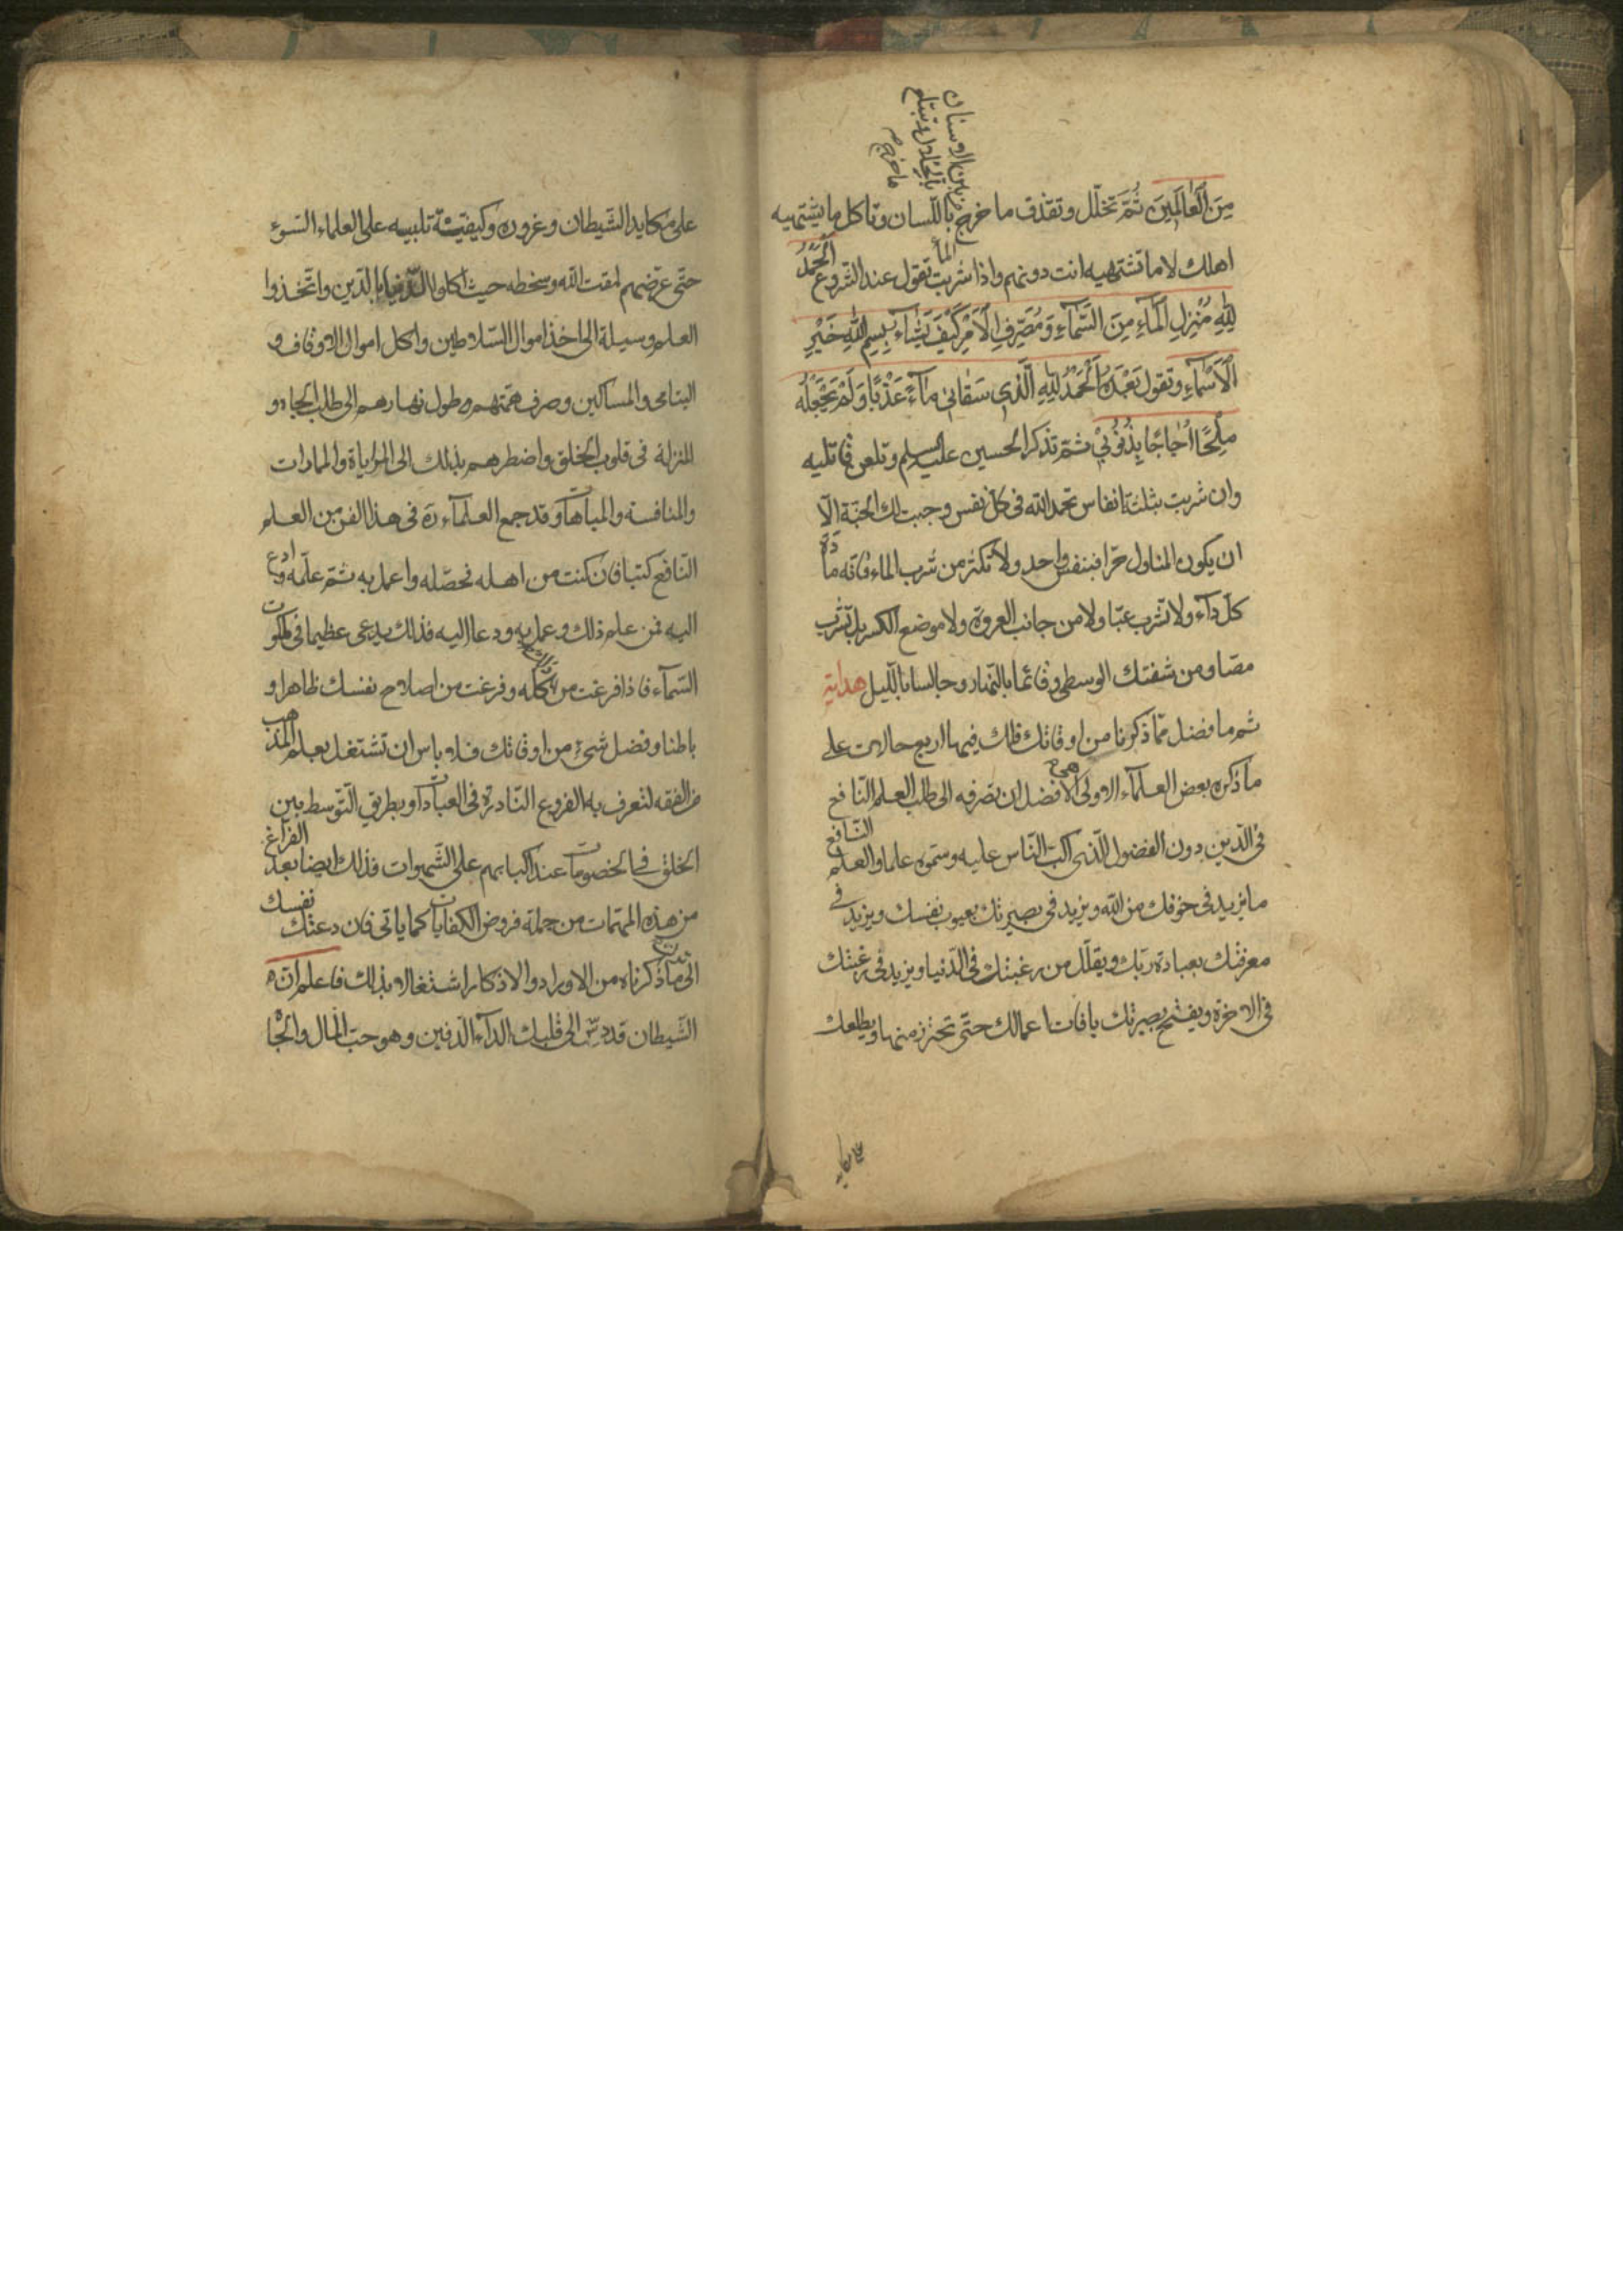 مِنَ الْعَالَمِينَ ثُمَّ تخلّل وتقذف ما خرج باللّسان وتاكل ما يشتهيه
اهلك لا ما تشتهيه انت دونهم واذا شربت الماء تقول عند الشروع الْحَمْدُ
لِلّهِ مُنْزِلِ الْمَاءِ مِنَ السَّمَاءِ وَمُصَرِّفِ الْاَمْرِ كَيْفَ يَشَاءُ بِسْمِ اللهِ خَيْرِ
الْاَسْمَاءِ وتقول بَعْدَهُ اَلْحَمْدُ لِلّهِ الَّذِى سَقَانِى مَاءً عَذْبًا وَلَمْ يَجْعَلْهُ
مِلْحًا اُجَاجًا بِذُنُوبِى ثمّ تذكر الحسين عليه السلم وتلعن قاتليه
وان شربت بثلثة انفاس تحمد الله فى كلّ نفس وجبت لك الجنّة الّا
ان يكون المناول حرّا فبنفس واحد ولا تكثر من شرب الماء فانّه مادّة
كلّ داء ولا تشرب عبّا ولا من جانب العروة ولا موضع الكسر بل تشرب
مصّا ومن شفتك الوسطى وقائما بالنّهار وجالسا باللّيل هداية
ثم ما فضل ممّا ذكرنا من اوقاتك فلك فيها اربع حالات على
ما ذكره بعض العلماء الاولى وهى الافضل ان تصرفه الى طلب العلم النّافع
فى الدّين دون الفضول الّذى اكبّ النّاس عليه وسمّوه علما والعلم النّافع
ما يزيد فى خوفك من الله ويزيد فى بصيرتك بعيوب نفسك ويزيد فى
معرفتك بعبادة ربّك ويقلّل من رغبتك فى الدّنيا ويزيد فى رغبتك
فى الاخرة ويفتح بصيرتك بافات اعمالك حتّى تحترز منها ويطلعك
على مكايد الشّيطان وغروره وكيفيّة تلبيسه على العلماء السّوء
حتّى عرّضهم لمقت الله وسخطه حيث اكلوا الدّنيا بالدّين واتّخذوا
العلم وسيلة الى اخذ اموال السّلاطين واكل اموال الاوقاف و
اليتامى والمساكين وصرف همّتهم طول نهارهم الى طلب الجاه و
المنزلة فى قلوب الخلق واضطرهم بذلك الى المراياة والمارات
والمنافسة والمباهاة وقد جمع العلماء ره فى هذا الفن من العلم
النّافع كتبا فان كنت من اهله فحصّله واعمل به ثمّ علّمه وادع
اليه فمن علم ذلك وعمل به ودعا اليه فذلك يدعى عظيما فى ملكوت
السّماء فاذا فرغت من ذلك كلّه وفرغت من اصلاح نفسك ظاهرا و
باطنا وفضل شىء من اوقاتك فلا باس ان تشتغل بعلم المذهب
فى الفقه لتعرف به الفروع النّادرة فى العبادات وطريق التّوسط بين
الخلق فى الخصومات عند اكبابهم على الشّهوات فذلك ايضا بعد الفراغ
من هذه المهمّات من جملة فروض الكفايات كما ياتى فان دعتك نفسك
الى ترك ما ذكرناه من الاوراد والاذكار اشتغالا بذلك فاعلم انّ
الشّيطان قد دسّ الى قلبك الداء الدّفين وهو حبّ المال والجاه